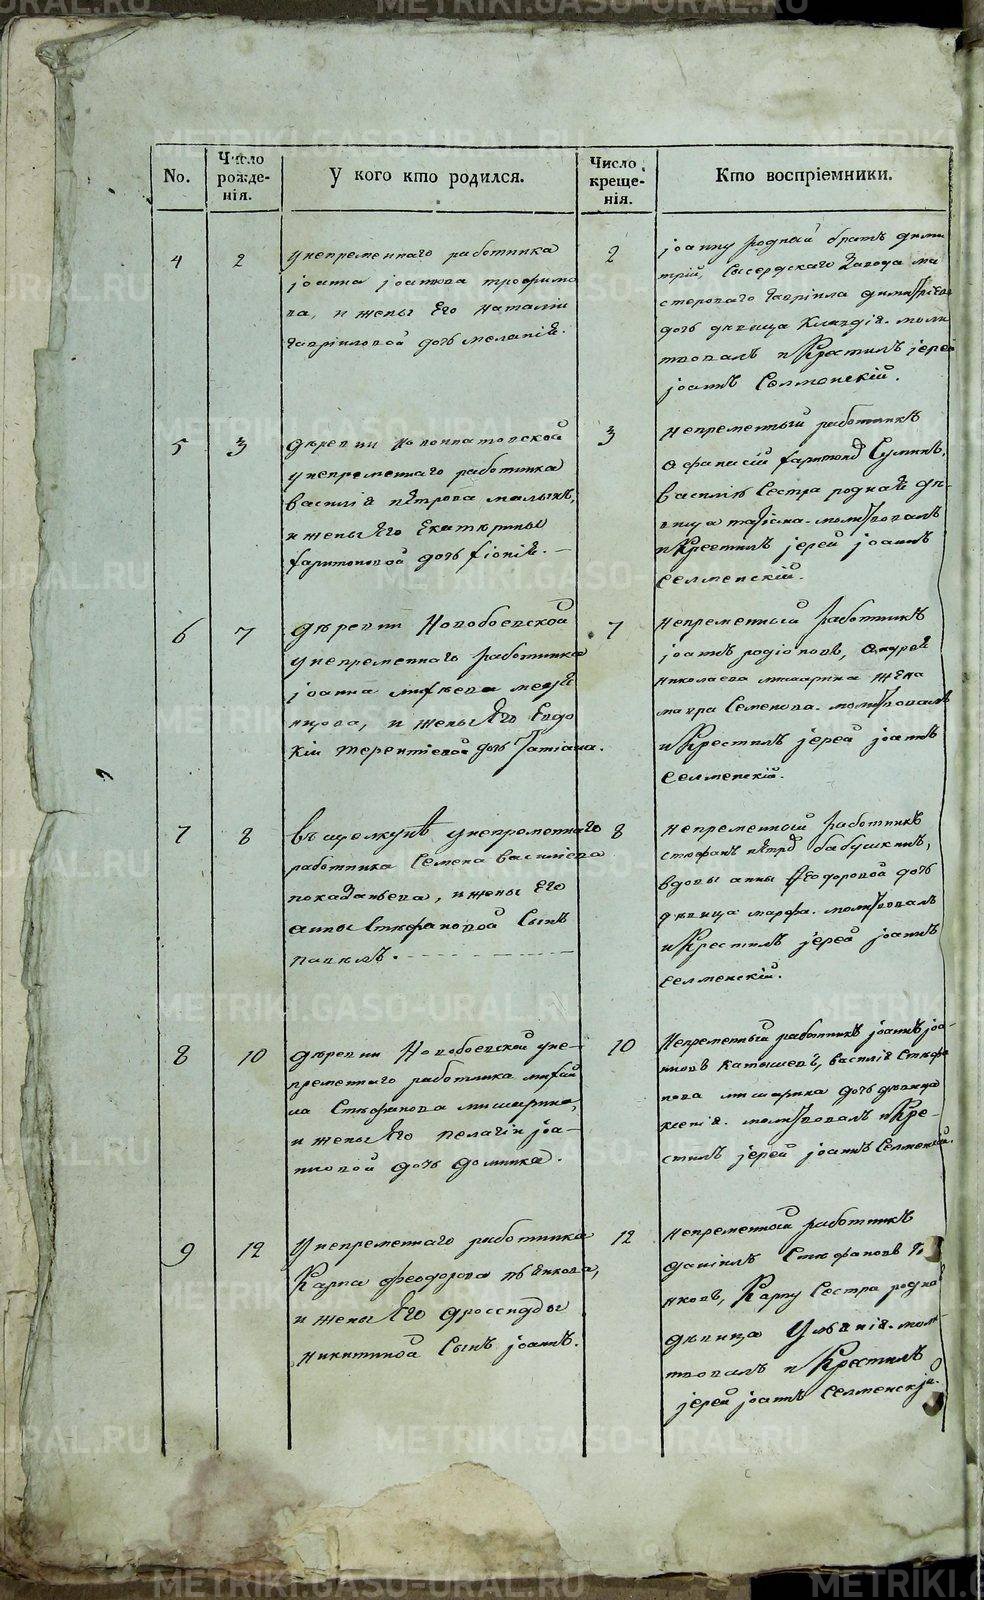 No.
Число рожде-нія.
У кого кто родился.
Число креще-нія.
Кто воспріемники.
4
2
унепременнаго работника
іоанна іоаннова трофимо
ва, и жены Его наталіи
гавріиловой дочь меланія.
2
іоанну родный братъ дими
трій, Сысердскаго Завода ма
стероваго гавріила димитріева
дочь девица Клавдія. моли
твовалъ и Крестилъ іерей
іоаннъ Селменскій.
5
3
деревни новоипатовской
унепременнаго работника
василія петрова малыхъ,
и жены Его Екатерины
харитоновой дочь Fіонія.
3
непременный работникъ
афанасій харитоновъ Суминъ,
василію Сестра родная де-
вица таісіа. молитвовалъ
и Крестилъ іерей іоаннъ
селменскій.
6
7
деревни Новобоевской
унепременнаго работника
іоанна
нцова, и жены Его Евдо
кіи терентіевой дочь Татіана.
7
непременный работникъ
іоаннъ родіоновъ, андрея
николаева мишарина жена
мавра Семенова. молитвовалъ
и Крестилъ іерей іоаннъ
селменскій.
7
8
въ щелкунѣ унепременнаго
работника Семена василіева
показаньева, и жены Его
анны Стефановой Сынъ
павелъ.
8
непременный работникъ
стефанъ петровъ бабушкинъ,
вдовы анны Феодоровой дочь
девица марфа. молитвовалъ
и Крестилъ іерей іоаннъ
селменскій.
8
10
деревни Новобоевской уне-
пременнаго работника михаи
ла Стефанова мишарина,
и жены Его пелагіи іоа-
нновой дочь домника.
10
Непременный работникъ іоаннъ іоа-
нновъ Катышевъ, василія Стефа
нова мишарина дочь девица
ксенія. молитвовалъ и Кре-
стилъ іерей іоаннъ Селменскій.
9
12
Унепременнаго работника
Карпа феодорова пьянкова,
и жены Его дроссиды
никитиной Сынъ іоаннъ.
12
непременный работникъ
даніилъ Стефановъ
нковъ, Карпу Сестра родная
девица Уліанія. моли
твовалъ и Крестилъ
іерей іоаннъ Селменскій.
METRIKI.GASO-URAL.RU